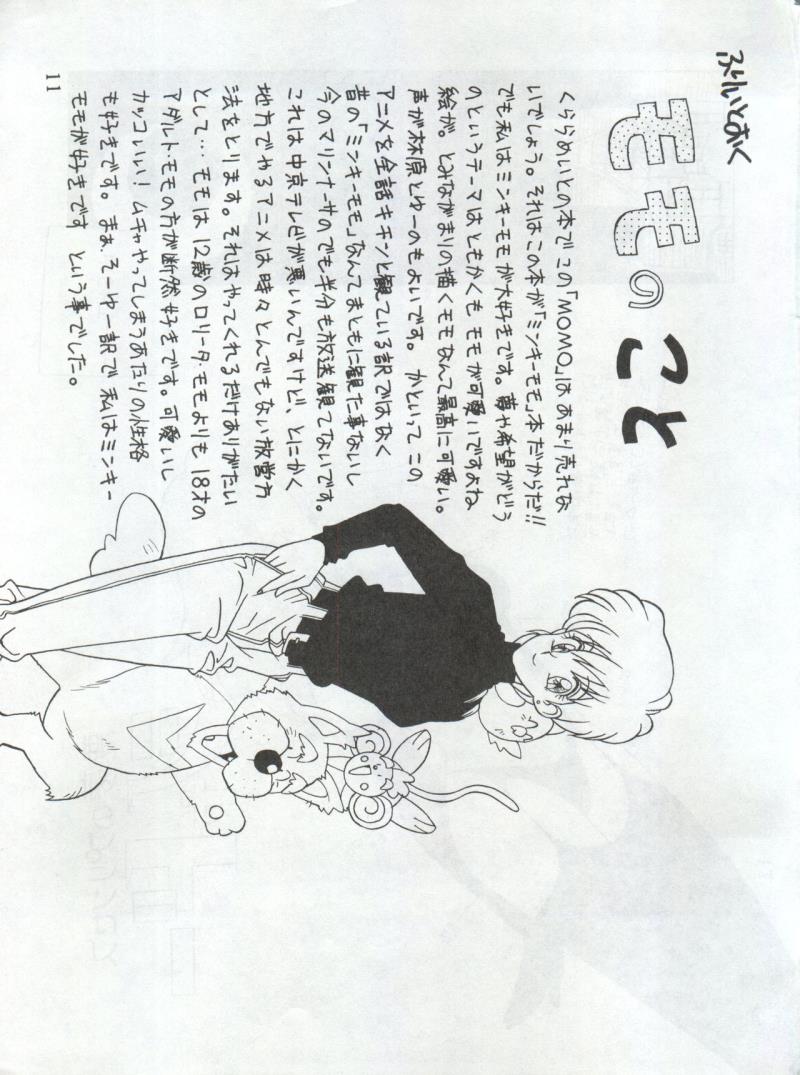 ふりいとおく
モモのこと
くららめいとの本で この「MOMO」は あまり売れな
いでしょう。それはこの本が「ミンキーモモ」本だからだ!!
でも私はミンキーモモが大好きです。夢や希望がどう
のというテーマはともかくも モモが可愛いですよね
絵が。とみながまりの描くモモなんて最高に可愛い。
声が林原とゆーのもよいです。かといって この
アニメを全話キチンと観ている訳ではなく
昔の「ミンキーモモ」なんてまともに観た事ないし
今のマリンナーサのでも半分も放送観てないです。
これは中京テレビが悪いんですけど、とにかく
地方でやるアニメは時々とんでもない放営方
法をとります。それはやってくれるだけありがたい
として… モモは 12歳のロリータ・モモよりも 18才の
アダルト・モモの方が断然好きです。可愛いし
カッコいい! ムチャやってしまうあたりの性格
も好きです。まぁ、そーゆー訳で 私はミンキー
モモが好きです という事でした。
11